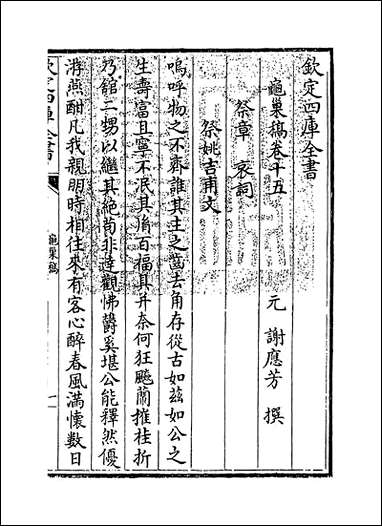 欽定四庫全書
龜巢稿卷十五
元 謝應芳 撰
祭章 哀詞
祭姚吉甫文
嗚呼物之不齊誰其主之齒去角存從古如茲如公之
生壽富且寧不泯其脩百福具并奈何狂飈蘭摧桂折
乃館二甥以繼其絶茍非達觀怫鬱奚堪公能釋然優
游燕酣凡我親朋時相往來有客心醉春風滿懷數日
欽定四庫全書
龜巢稿
一